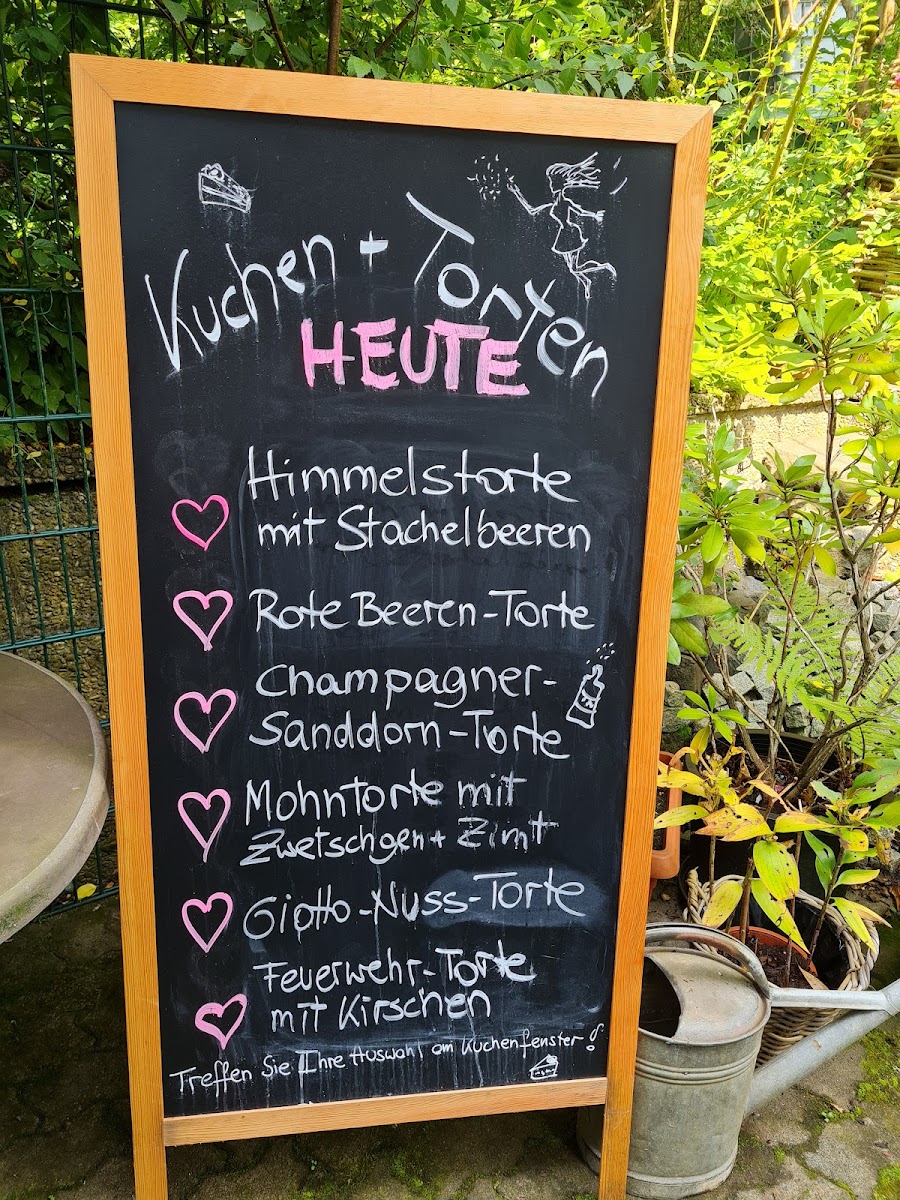 Kuchen + Torten
HEUTE
Himmelstorte
mit Stachelbeeren
Rote Beeren-Torte
Champagner-
Sanddorn-Torte
Mohntorte mit
Zwetschgen + Zimt
Giotto-Nuss-Torte
Feuerwehr-Torte
mit Kirschen
Treffen Sie Ihre Auswahl am Kuchenfenster!